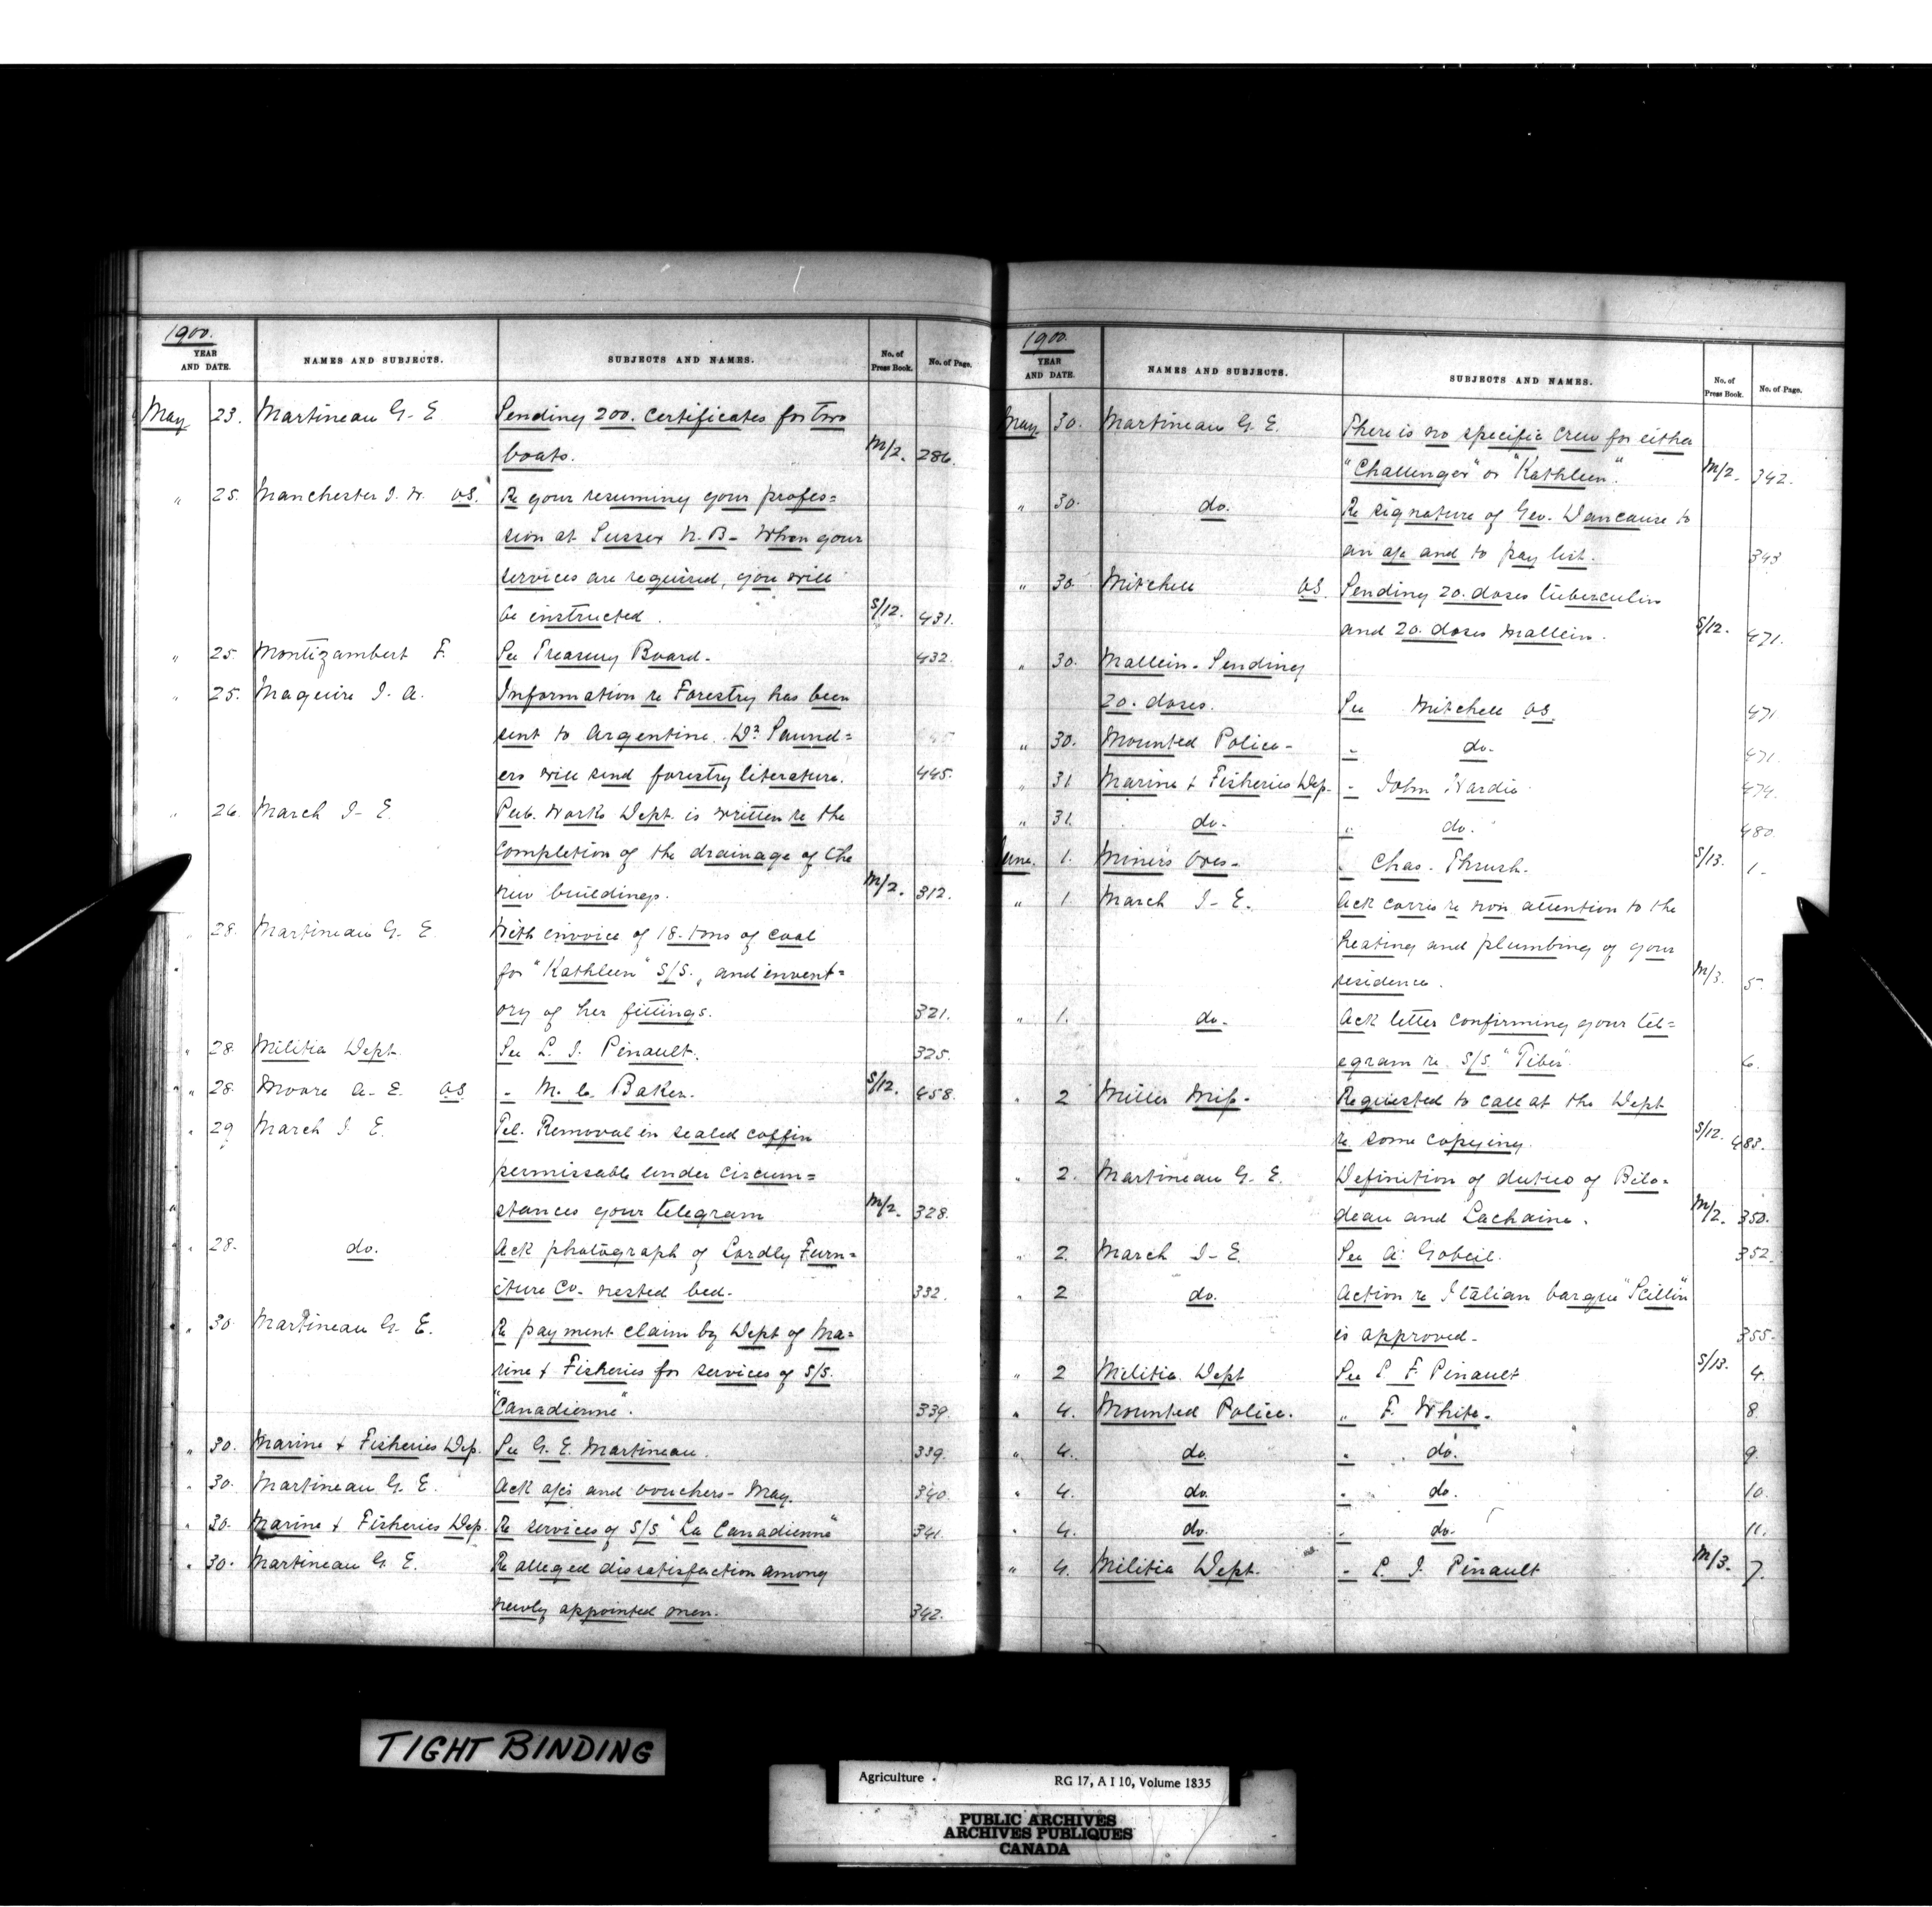 1900.
YEAR AND DATE.
NAMES AND SUBJECTS.
SUBJECTS AND NAMES.
No. of Press Book.
No. of Page.
May 23. Martineau G. E Sending 200. certificates for two
boats. M/2. 286.
" 25. Manchester J. W. VS. Re your resuming your profes=
sion at Sussex N. B- When your
services are required, you will
be instructed. S/12. 431.
" 25. Montizambert F. See Treasury Board. 432.
" 25. Maguire J. A. Information re Forestry has been
sent to Argentine. Dr. Saund=
ers will send forestry literature. 445.
" 26. March J- E. Pub. Works Dept. is written re the
completion of the drainage of the
new buildings. M/2. 312.
" 28. Martineau G. E. With invoice of 18. tons of coal
for "Kathleen" S/S., and invent=
ory of her fittings. 321.
" 28. Militia Dept. See L. J. Pinault. 325.
" 28. Moore A- E. VS " M. C. Baker. S/12. 458.
" 29 March J. E. Tel. Removal in sealed coffin
permissable under circum=
stances your telegram M/2. 328.
" 28. do. Ack photograph of Lordly Furn=
iture Co- nested bed- 332.
" 30. Martineau G. E. Re payment claim by Dept of Ma=
rine & Fisheries for services of S/S.
"Canadienne". 339.
" 30. Marine & Fisheries Dep. See G. E. Martineau. 339.
" 30. Martineau G. E. Ack a/cs and vouchers- May. 340.
" 30. Marine & Fisheries Dep. Re services of S/S "La Canadienne" 341.
" 30. Martineau G. E. Re alleged dissatisfaction among
newly appointed men. 342.
1900.
YEAR AND DATE.
NAMES AND SUBJECTS.
SUBJECTS AND NAMES.
No. of Press Book.
No. of Page.
May 30. Martineau G. E. There is no specific crew for either
"Challenger" or "Kathleen". M/2. 342.
" 30. do. Re signature of Geo. Dancause to
an a/c and to pay list. 343
" 30. Mitchell VS. Sending 20. doses tuberculin
and 20. doses mallein. S/12. 471.
" 30. Mallein- Sending
20. doses. See Mitchell VS. 471
" 30. Mounted Police- " do- 471.
" 31 Marine & Fisheries Dep. " John Hardie. 474.
" 31. do- " do. 480.
June. 1. Miners Ores- " Chas. Thrush. S/13. 1.
" 1. March J- E. Ack corres re non attention to the
heating and plumbing of your
residence. M/3. 5.
" 1. do- Ack letter confirming your tel=
egram re. S/S. "Tiber". 6.
" 2 Miller Miss- Requested to call at the Dept
re some copying. S/12. 483.
" 2. Martineau G. E. Definition of duties of Bilo=
deau and Lachaine. M/2. 350.
" 2. March J- E. See A. Gobeil. 352.
" 2 do. Action re Italian barque "Scillin"
is approved- 355.
" 2 Militia Dept See L. F. Pinault S/13. 4.
" 4. Mounted Police. " F. White. 8
" 4. do. " do. 9.
" 4. do. " do. 10.
" 4. do. " do. 11.
" 4. Militia Dept. " L. J. Pinault M/3. 7.
TIGHT BINDING
Agriculture. RG 17, A I 10, Volume 1835
PUBLIC ARCHIVES
ARCHIVES PUBLIQUES
CANADA